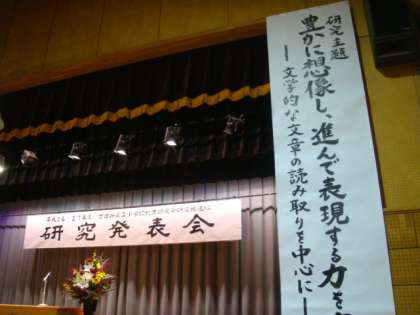 研究主題
豊かに想像し、進んで表現する力を
―文学的な文章の読み取りを中心に―
研究発表会